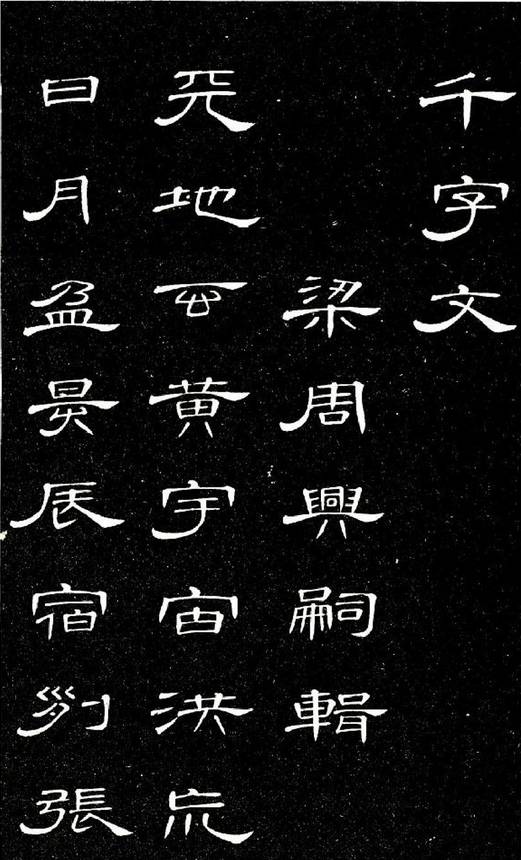 千字文
梁周興嗣輯
天地玄黄宇宙洪巟
日月盈昃辰宿列張